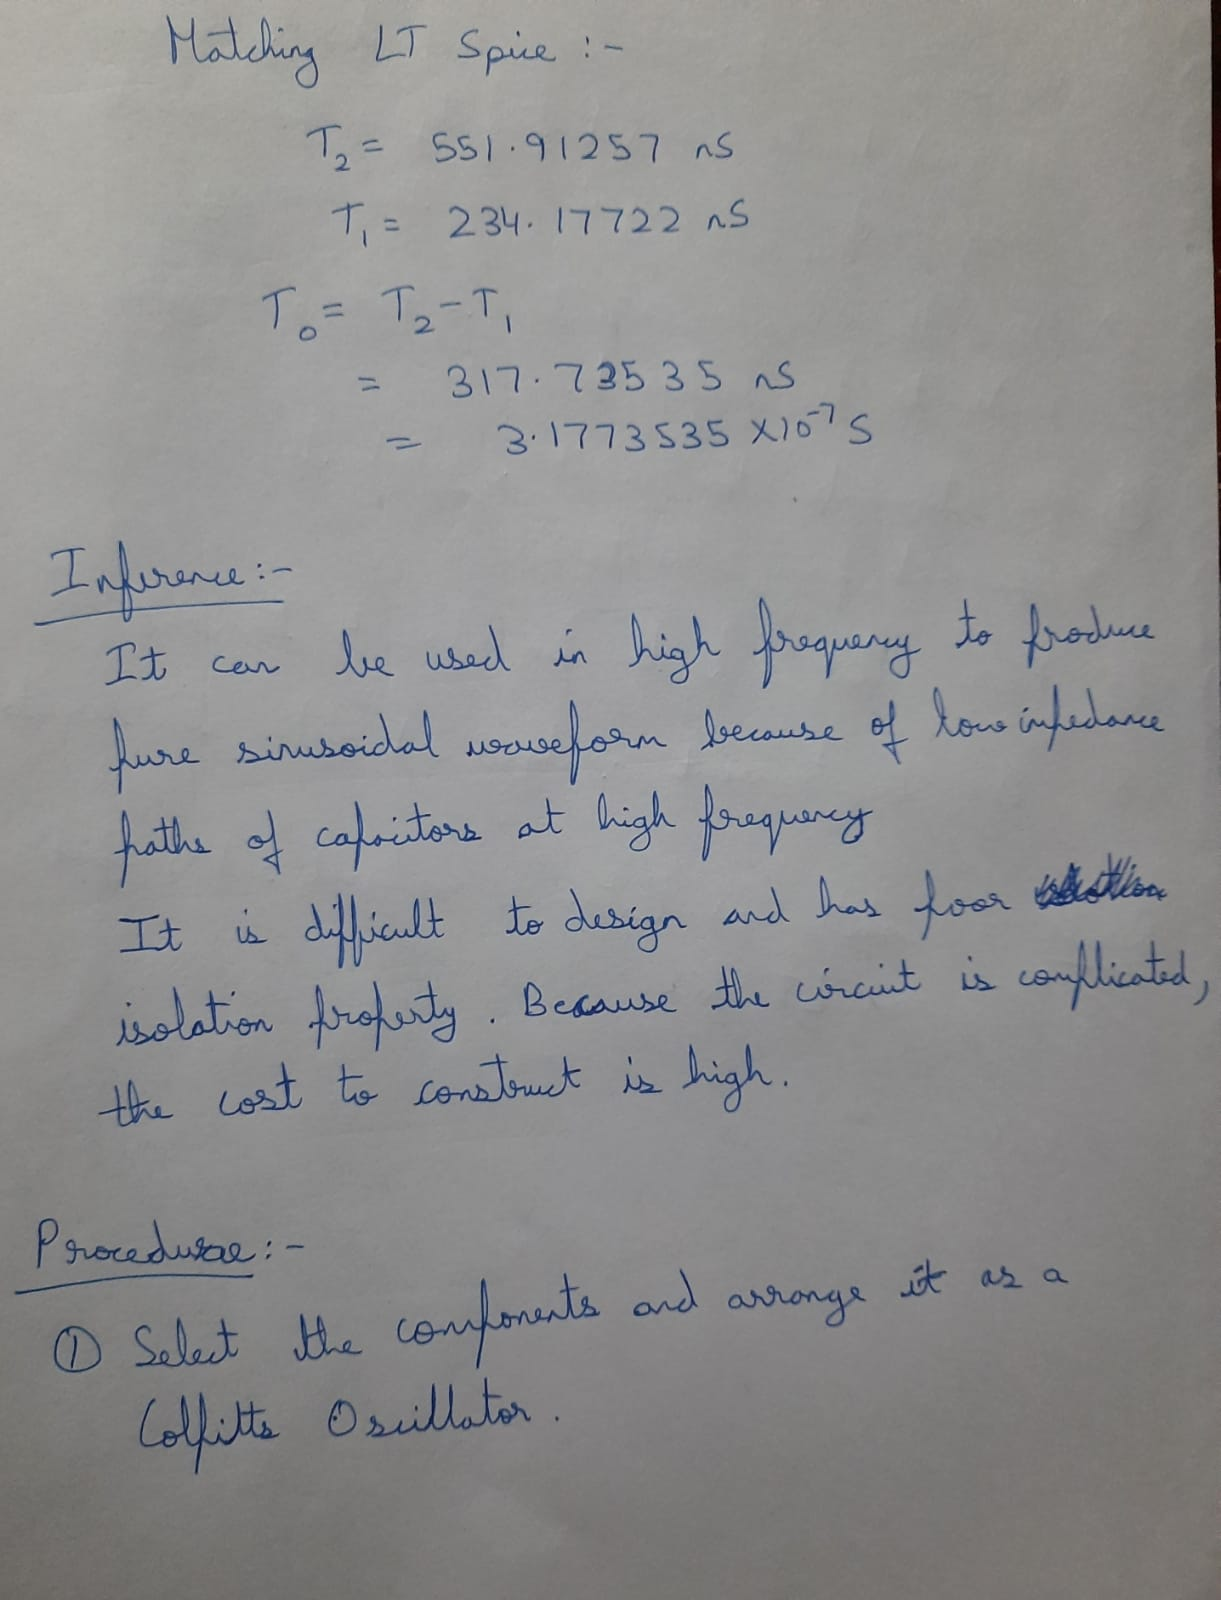 Matching LT Spice :-
T₂ = 551.91257 nS
T₁ = 234.17722 nS
T₀ = T₂ - T₁
= 317.73535 nS
= 3.1773535 X10⁻⁷ S
Inference :-
It can be used in high frequency to produce
pure sinusoidal waveform because of low impedance
paths of capacitors at high frequency
It is difficult to design and has poor
isolation property. Because the circuit is complicated,
the cost to construct is high.
Procedure :-
① Select the components and arrange it as a
Colpitts Oscillator.